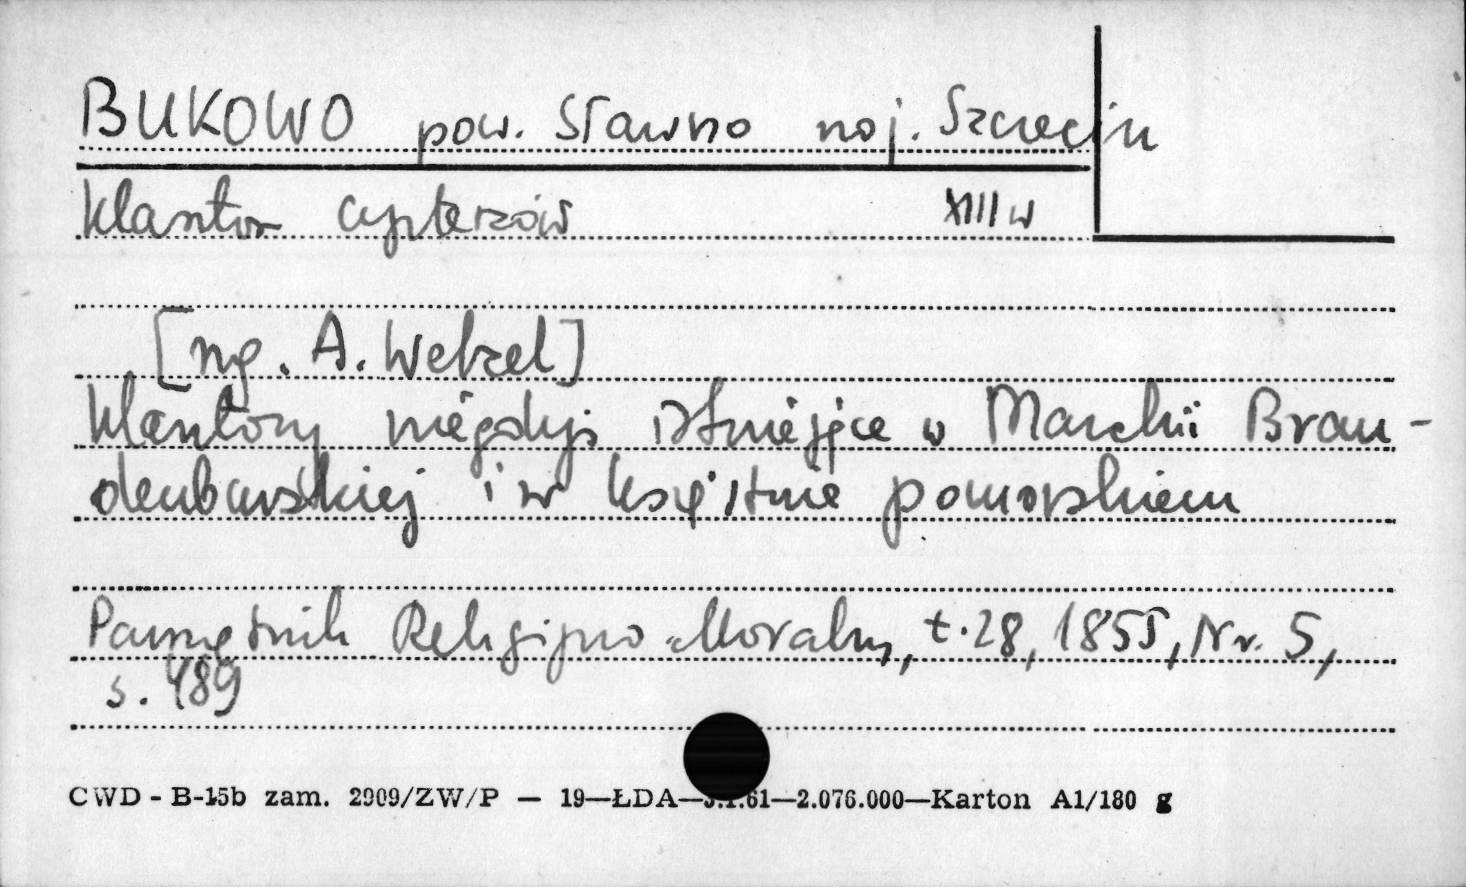 BUKOWO pow. Sławno woj. Szczecin
klasztor cystersów XIII w
[wg. A. Wetzel]
klasztory niegdyś istniejące w Marchii Bran-
denburskiej i w księstwie pomorskiem
Pamiętnik Religijno-Moralny, t. 28, 1855, Nr. 5,
s. 489
CWD - B-15b zam. 2909/ZW/P — 19—ŁDA—5.1.61—2.076.000—Karton A1/180 g